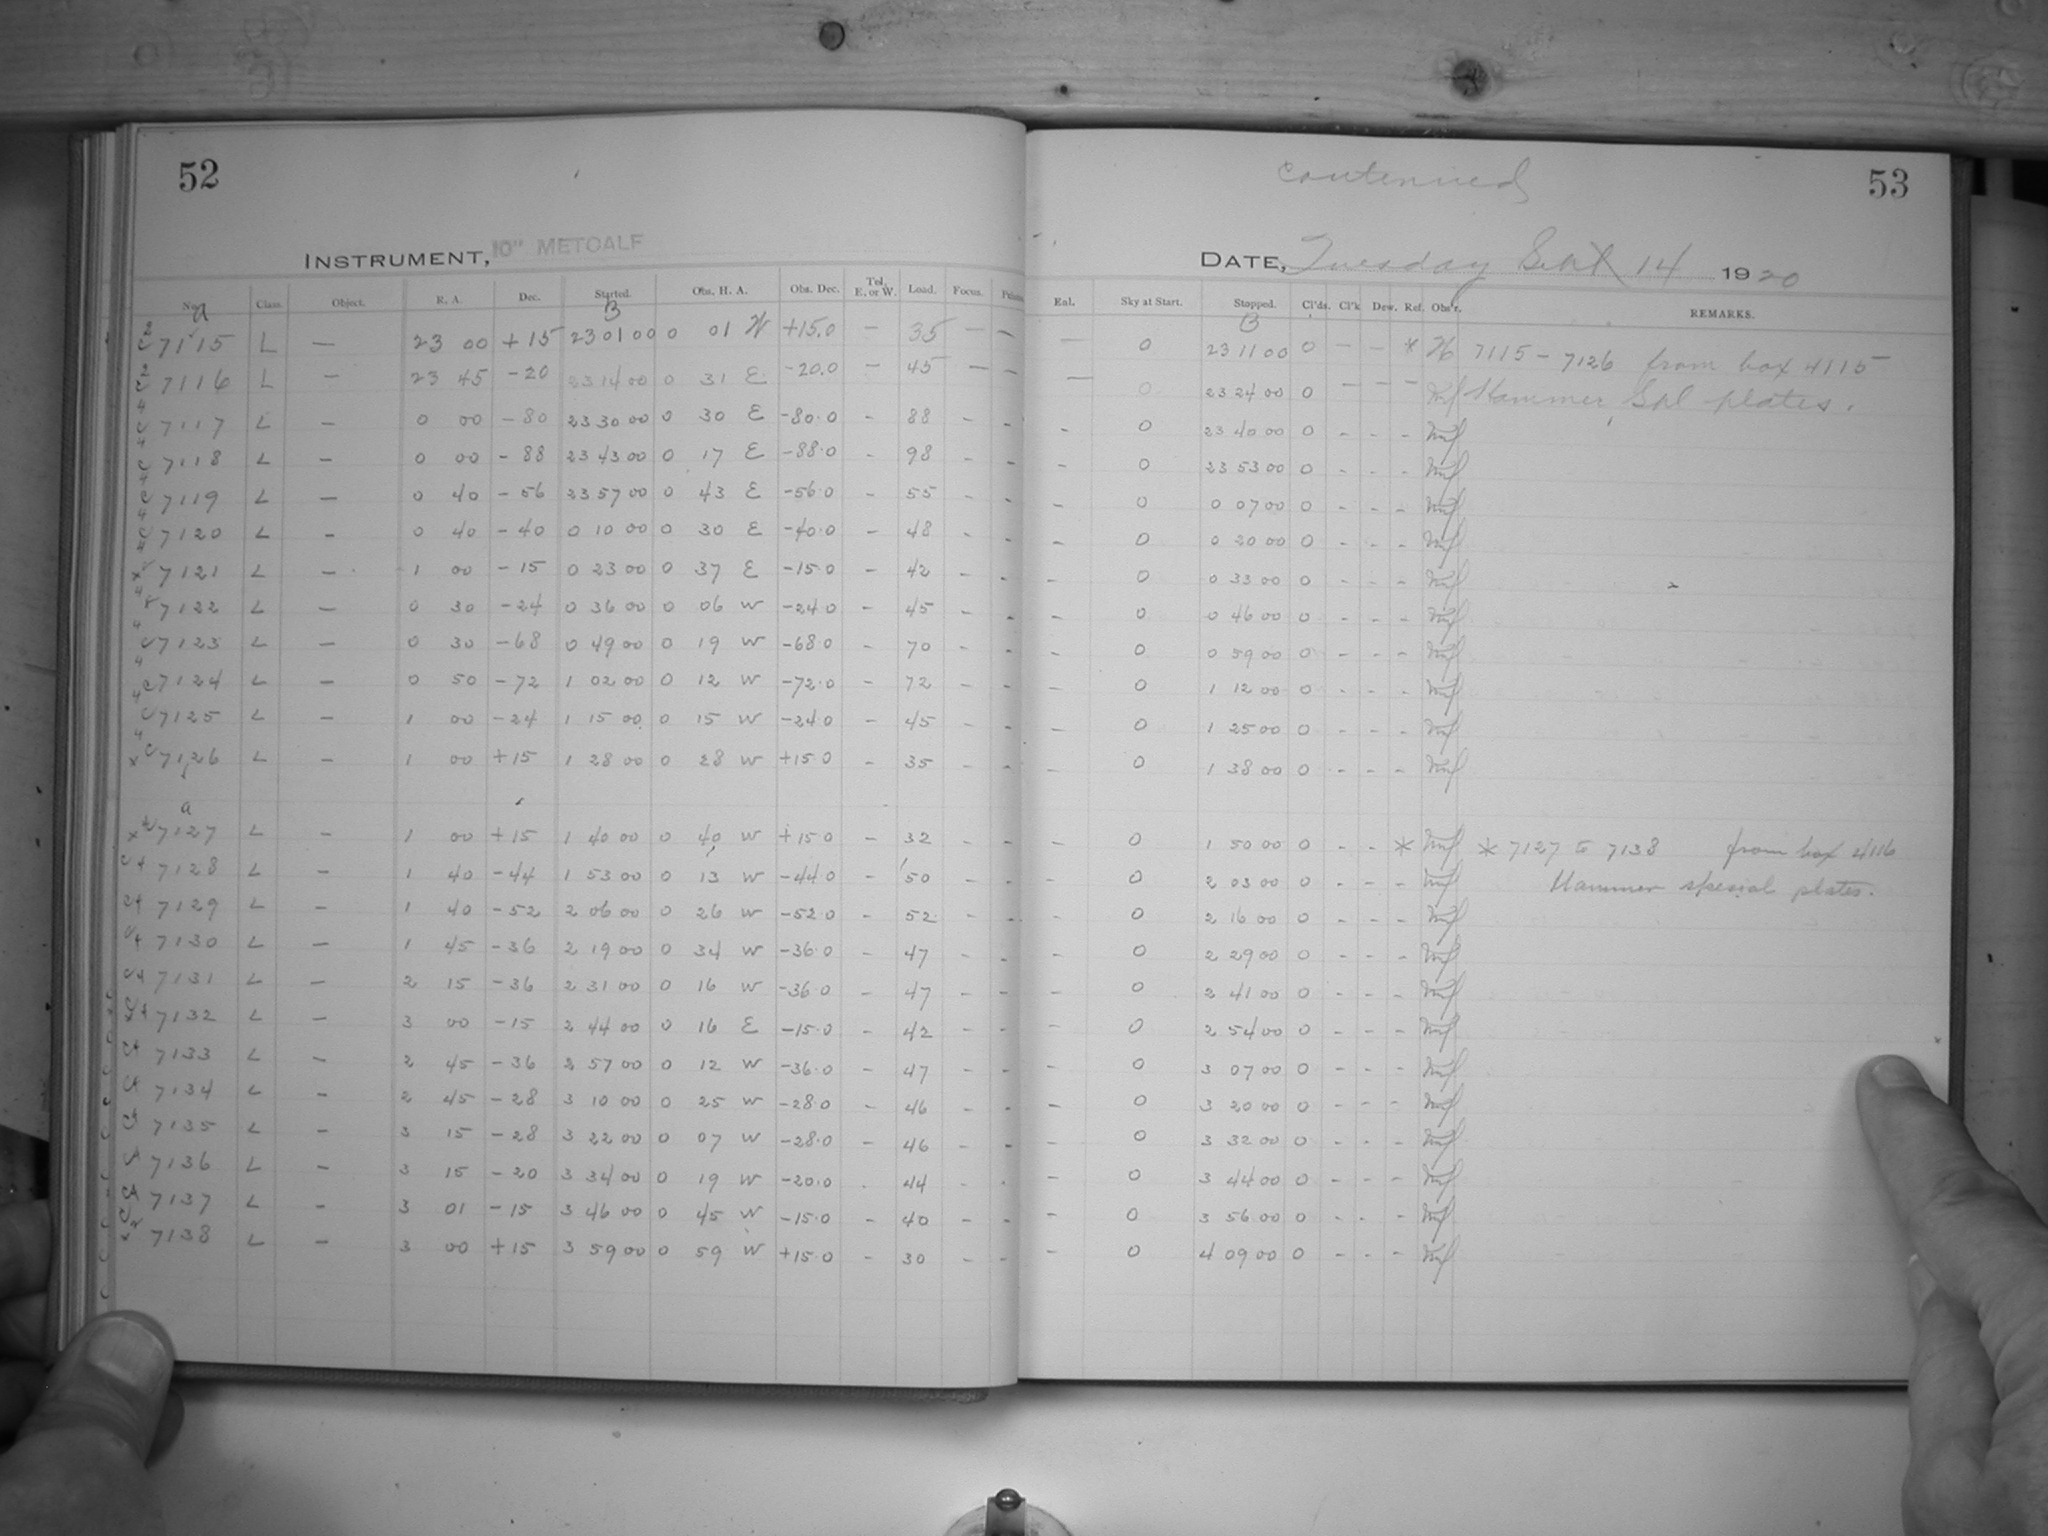 52
INSTRUMENT, 10" METCALF
No. Class. Object. R. A. Dec. Started. Obs. H. A. Obs. Dec. Tel. E. or W. Load. Focus.
a B
7115 L — 23 00 +15 23 01 00 0 01 W +15.0 — 35 — —
7116 L — 23 45 -20 23 14 00 0 31 E -20.0 — 45 — —
7117 L — 0 00 -80 23 30 00 0 30 E -80.0 - 88 - -
7118 L — 0 00 -88 23 43 00 0 17 E -88.0 - 98 - -
7119 L — 0 40 -56 23 57 00 0 43 E -56.0 - 55 - -
7120 L - 0 40 -40 0 10 00 0 30 E -40.0 - 48 - -
7121 L - 1 00 -15 0 23 00 0 37 E -15.0 - 42 - -
7122 L - 0 30 -24 0 36 00 0 06 W -24.0 - 45 - -
7123 L - 0 30 -68 0 49 00 0 19 W -68.0 - 70 - -
7124 L - 0 50 -72 1 02 00 0 12 W -72.0 - 72 - -
7125 L - 1 00 -24 1 15 00 0 15 W -24.0 - 45 - -
7126 L - 1 00 +15 1 28 00 0 28 W +15.0 - 35 - -
a
7127 L - 1 00 +15 1 40 00 0 40 W +15.0 - 32 - -
7128 L - 1 40 -44 1 53 00 0 13 W -44.0 - 50 - -
7129 L - 1 40 -52 2 06 00 0 26 W -52.0 - 52 - -
7130 L - 1 45 -36 2 19 00 0 34 W -36.0 - 47 - -
7131 L - 2 15 -36 2 31 00 0 16 W -36.0 - 47 - -
7132 L - 3 00 -15 2 44 00 0 16 E -15.0 - 42 - -
7133 L - 2 45 -36 2 57 00 0 12 W -36.0 - 47 - -
7134 L - 2 45 -28 3 10 00 0 25 W -28.0 - 46 - -
7135 L - 3 15 -28 3 22 00 0 07 W -28.0 - 46 - -
7136 L - 3 15 -20 3 34 00 0 19 W -20.0 - 44 - -
7137 L - 3 01 -15 3 46 00 0 45 W -15.0 - 40 - -
7138 L - 3 00 +15 3 59 00 0 59 W +15.0 - 30 - -
continued
53
DATE, Tuesday Sept 14 1920
Sky at Start. Stopped. Cl'ds. Cl'k Dew. Ref. Obs'r. REMARKS.
B
— 0 23 11 00 0 - - * W 7115 - 7126 from box 4115
— 0 23 24 00 0 - - - Hammer Spl plates.
- 0 23 40 00 0 - - -
- 0 23 53 00 0 - - -
- 0 0 07 00 0 - - -
- 0 0 20 00 0 - - -
- 0 0 33 00 0 - - -
- 0 0 46 00 0 - - -
- 0 0 59 00 0 - - -
- 0 1 12 00 0 - - -
- 0 1 25 00 0 - - -
- 0 1 38 00 0 - - -
- 0 1 50 00 0 - - * * 7127 to 7138 from box 4116
- 0 2 03 00 0 - - - Hammer spesial plates.
- 0 2 16 00 0 - - -
- 0 2 29 00 0 - - -
- 0 2 41 00 0 - - -
- 0 2 54 00 0 - - -
- 0 3 07 00 0 - - -
- 0 3 20 00 0 - - -
- 0 3 32 00 0 - - -
- 0 3 44 00 0 - - -
- 0 3 56 00 0 - - -
- 0 4 09 00 0 - - -